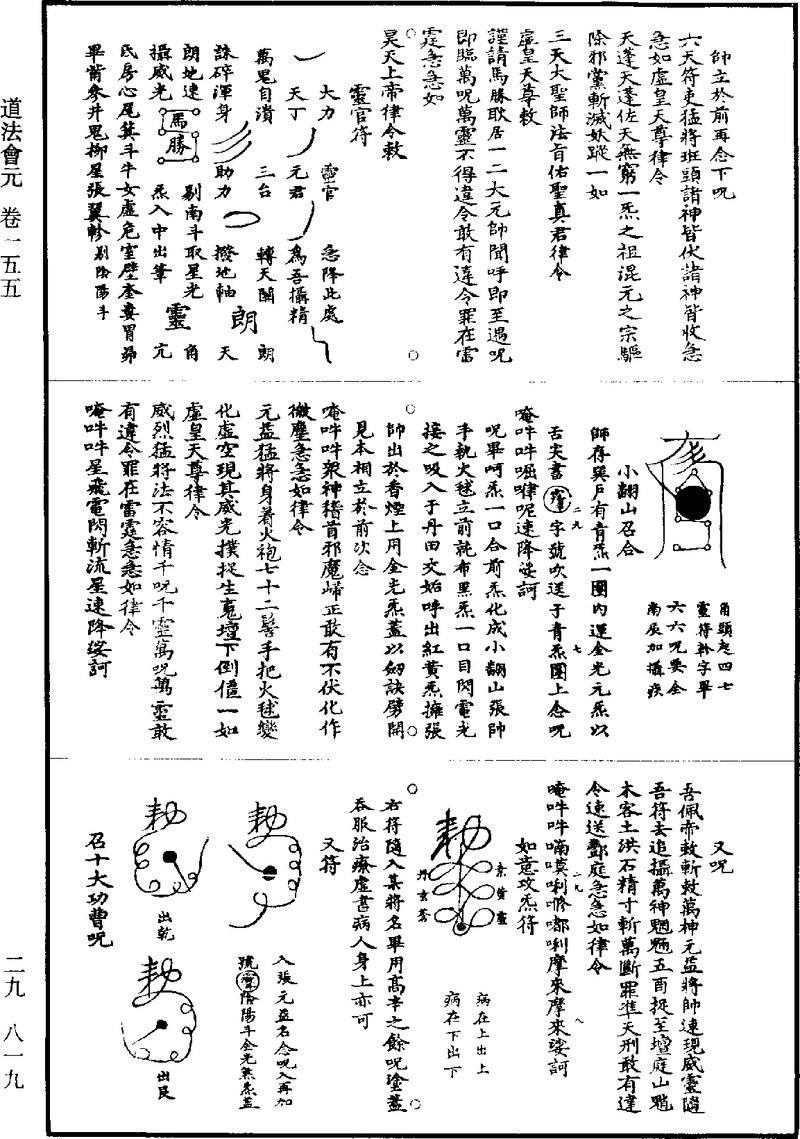 帥立於前再念下呪
六天符吏猛將班頭諸神皆伏諸神皆收急
急如虛皇天尊律令
天逢天蓬佐天無窮一炁之祖混元之宗驅
除邪黨斬滅妖蹤一如
三天大聖師法旨佑聖真君律令
虛皇天尊敕
謹請馬勝耿居一二大元帥聞呼即至遇呪
即臨萬呪萬靈不得違令敢有違令罪在雷
霆急急如
昊天上帝律令敕
靈官符
大力 靈官 急降此處
天丁 元君 為吾攝精
萬鬼自潰 三台 轉天關 朗
誅碎渾身 助力 撥地軸 天
朗地速 馬勝 剔南斗取星光 角
攝威光 炁入中出筆 亢
朗 靈
氐房心尾箕斗牛女虛危室壁奎婁胃昴
畢觜參井鬼柳星張翼軫 剔陰陽斗
角頭起四七
靈符斡字畢
六六呪要全
小翻山召合
師存巽戶有青炁一團內運金光元炁以
舌尖書 字號吹送于青炁團上念呪
唵吽吽 呢速降娑訶
呪畢呵炁一口合前炁化成小翻山張帥
手執火毬立前就布黑炁一口目閃電光
接之吸入于丹田交姤呼出紅黃炁擁張
帥出於香煙上用金光炁蓋以劒訣劈開
見本相立於前次念
唵吽吽眾神稽首邪魔歸正敢有不伏化作
微塵急急如律令
元益猛將身着火袍七十二髻手把火毬變
化虛空現其威光撲捉生䰟壇下倒懂一如
虛皇天尊律令
威烈猛將法不容情千呪千靈萬呪萬靈敢
有違令罪在雷霆急急如律令
唵吽吽星飛電閃斬流星速降娑訶
又呪
吾佩帝敕斬敕萬神元益將帥速現威靈隨
吾符去追攝萬神魍魎五酉捉至壇庭山魈
木客土洪石精寸斬萬斷罪準天刑敢有違
令速送酆庭急急如律令
唵吽吽 唎 唎摩來摩來娑訶
如意攻炁符
病在上出上
病在下出下
右符隨入某將名畢用高辛之餘呪塗蓋
吞服治療虛書病人身上亦可
又符
入張元益名念呪入再加
陰陽斗金光 炁蓋
出乾
出艮
召十大功曹呪
道法會元 卷一五五
二九 八一九